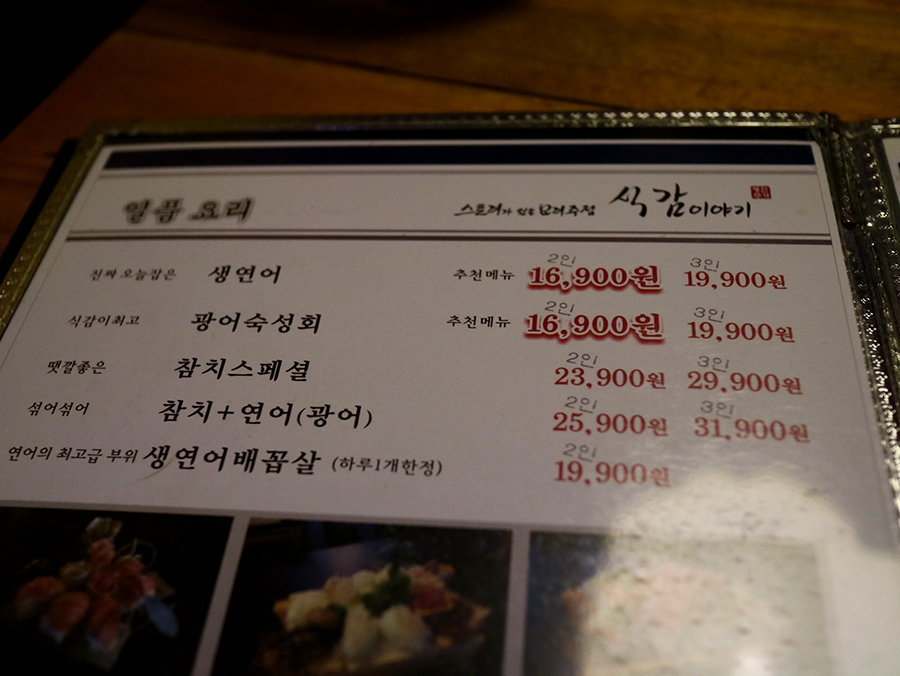 일품 요리 스토리가 있는 요리주점 식감이야기
2인 3인
진짜 오늘잡은 생연어 추천메뉴 16,900원 19,900원
2인 3인
식감이최고 광어숙성회 추천메뉴 16,900원 19,900원
2인 3인
땟깔좋은 참치스페셜 23,900원 29,900원
2인 3인
섞어섞어 참치+연어(광어) 25,900원 31,900원
2인
연어의 최고급 부위 생연어배꼽살 (하루1개한정) 19,900원